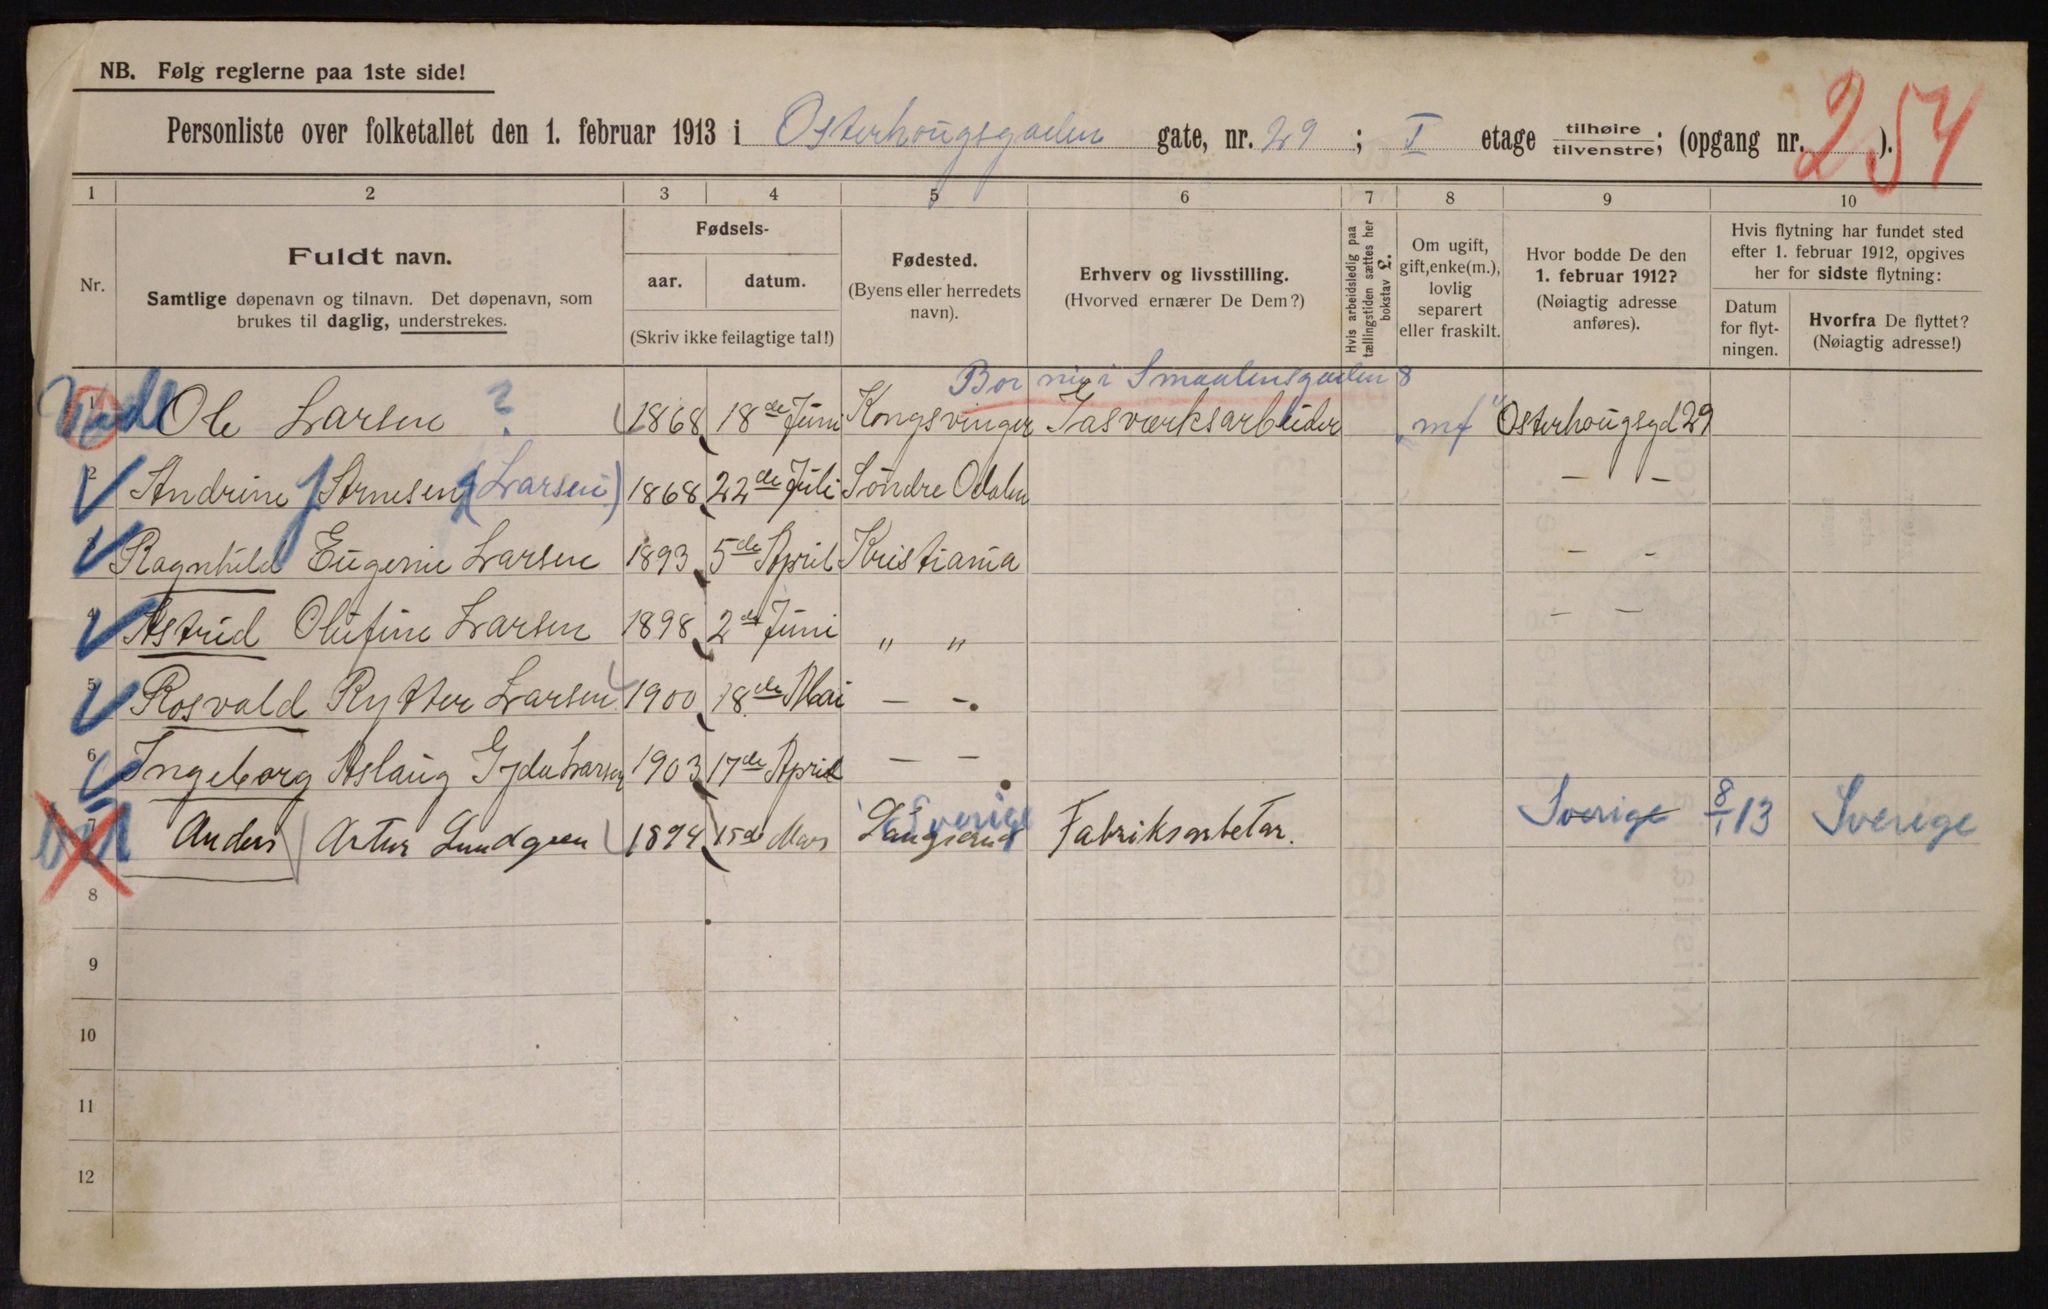 NB. Følg reglerne paa 1ste side!
Personliste over folketallet den 1. februar 1913 i Osterhougsgaden gate, nr. 29 ; I etage tilhøire / tilvenstre; (opgang nr. ).
254
1 2 3 4 5 6 7 8 9 10
Nr.
Fuldt navn.
Samtlige døpenavn og tilnavn. Det døpenavn, som
brukes til daglig, understrekes.
Fødsels-
aar. datum.
(Skriv ikke feilagtige tal!)
Fødested.
(Byens eller herredets
navn).
Erhverv og livsstilling.
(Hvorved ernærer De Dem?)
Hvis arbeidsledig paa
tællingstiden sættes her
bokstav L.
Om ugift,
gift, enke(m.),
lovlig
separert
eller fraskilt.
Hvor bodde De den
1. februar 1912?
(Nøiagtig adresse
anføres).
Hvis flytning har fundet sted
efter 1. februar 1912, opgives
her for sidste flytning:
Datum
for flyt-
ningen.
Hvorfra De flyttet?
(Nøiagtig adresse!)
Bor nu i Smaalensgaden 8
1 Ole Larsen ? 1868 18de Juni Kongsvinger Gasværksarbeider "mf" Osterhougsgd 29
2 Andrine Arnesen (Larsen) 1868 22de Juli Søndre Odalen — —
3 Ragnhild Eugenie Larsen 1893 5de April Kristiania — —
4 Astrid Olufine Larsen 1898 2de Juni " " — —
5 Rosvald Rytter Larsen 1900 18de Mai — —
6 Ingeborg Aslaug Gyda Larsen 1903 17de April — —
7 Anders Artur Lundgren 1894 15de Mars Sverige Fabriksarbetar. Sverige 8/1 13 Sverige
8
9
10
11
12